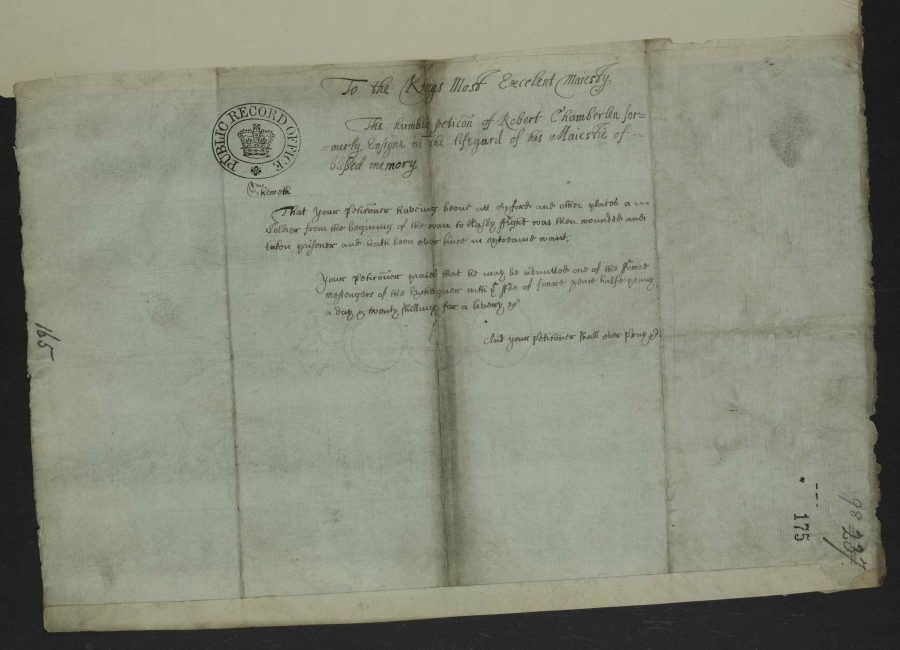 To the Kings Most Excelent Maiesty
The humble peticōn of Robert Chamberlen for-
=merly Ensigne in the lifegard of his Maiestie of
blessed memory
PUBLIC RECORD OFFICE
Sheweth
That your Peticōner haveing beene att Oxford and other places a
Soldier from the begining of the warr to Nasby ffight was then wounded and
taken prisoner and hath been ever since in extreame want.
Your Peticōner praies that he may be admitted one of the
messengers of the Exchequer with yᵉ ffee of foure pence halfe penny
a day & twenty shillings for a livery &c
And your Peticōner shall ever pray &c
165
175
98
237